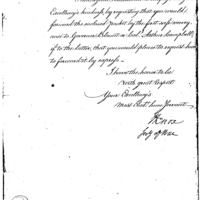 Excellency's kindness, by requesting that you would
forward the enclosed packet by the first safe convey-
ance to Governor Blount or Col. Arthur Campbell,
if to the latter, that you would please to request him
to forward it by express.
I have the honor to be
with great respect
Your Excellency's
Most Obed. hum. Servant
H Knox
Secy of War